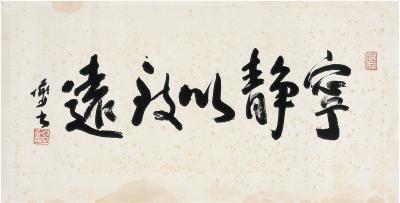 寧靜以致遠